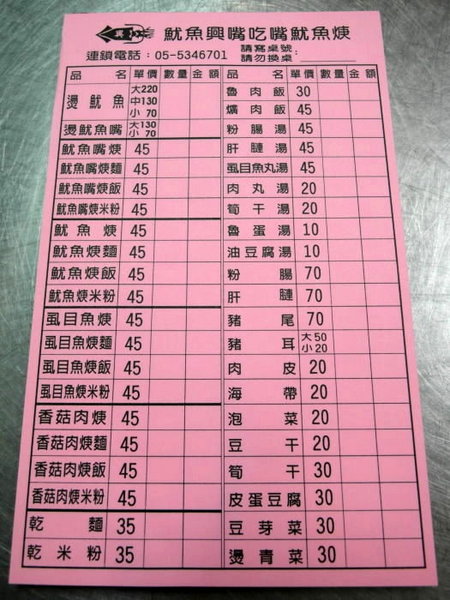 魷魚興嘴吃嘴魷魚焿
連鎖電話：05-5346701 請寫桌號 請勿換桌：
品名 單價 數量 金額 品名 單價 數量 金額
燙魷魚 大220 中130 小70 魯肉飯 30
爌肉飯 45
燙魷魚嘴 大130 小70 粉腸湯 45
魷魚嘴焿 45 肝腱湯 45
魷魚嘴焿麵 45 虱目魚丸湯 45
魷魚嘴焿飯 45 肉丸湯 20
魷魚嘴焿米粉 45 筍干湯 20
魷魚焿 45 魯蛋湯 10
魷魚焿麵 45 油豆腐湯 10
魷魚焿飯 45 粉腸 70
魷魚焿米粉 45 肝腱 70
虱目魚焿 45 豬尾 70
虱目魚焿麵 45 豬耳 大50 小20
虱目魚焿飯 45 肉皮 20
虱目魚焿米粉 45 海帶 20
香菇肉焿 45 泡菜 20
香菇肉焿麵 45 豆干 20
香菇肉焿飯 45 筍干 30
香菇肉焿米粉 45 皮蛋豆腐 30
乾麵 35 豆芽菜 30
乾米粉 35 燙青菜 30